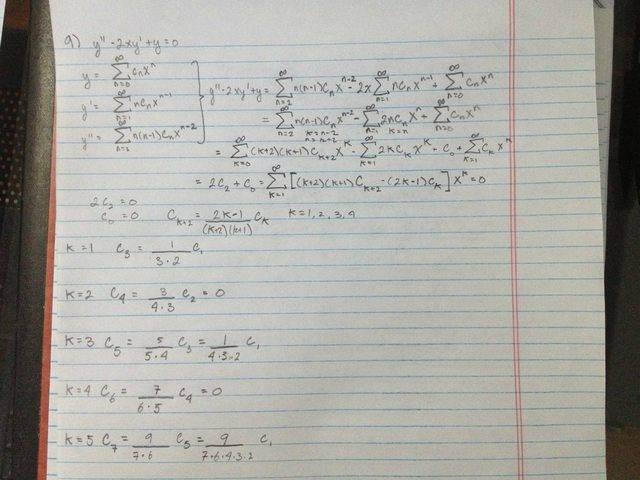 9) y'' - 2xy' + y = 0
y = ∑_{n=0}^{∞} c_n x^n
y' = ∑_{n=1}^{∞} n c_n x^{n-1}
y'' = ∑_{n=2}^{∞} n(n-1) c_n x^{n-2}
y'' - 2xy' + y = ∑_{n=2}^{∞} n(n-1) c_n x^{n-2} - 2x ∑_{n=1}^{∞} n c_n x^{n-1} + ∑_{n=0}^{∞} c_n x^n
= ∑_{n=2}^{∞} n(n-1) c_n x^{n-2} - ∑_{n=1}^{∞} 2n c_n x^n + ∑_{n=0}^{∞} c_n x^n
k=n-2 k=n
n=k+2
= ∑_{k=0}^{∞} (k+2)(k+1) c_{k+2} x^k - ∑_{k=1}^{∞} 2k c_k x^k + c_0 + ∑_{k=1}^{∞} c_k x^k
= 2c_2 + c_0 = ∑_{k=1}^{∞} [(k+2)(k+1) c_{k+2} - (2k-1) c_k] x^k = 0
2c_2 = 0
c_0 = 0 c_{k+2} = \frac{2k-1}{(k+2)(k+1)} c_k k=1,2,3,4
k=1 c_3 = \frac{1}{3·2} c_1
k=2 c_4 = \frac{3}{4·3} c_2 = 0
k=3 c_5 = \frac{5}{5·4} c_3 = \frac{1}{4·3·2} c_1
k=4 c_6 = \frac{7}{6·5} c_4 = 0
k=5 c_7 = \frac{9}{7·6} c_5 = \frac{9}{7·6·4·3·2} c_1